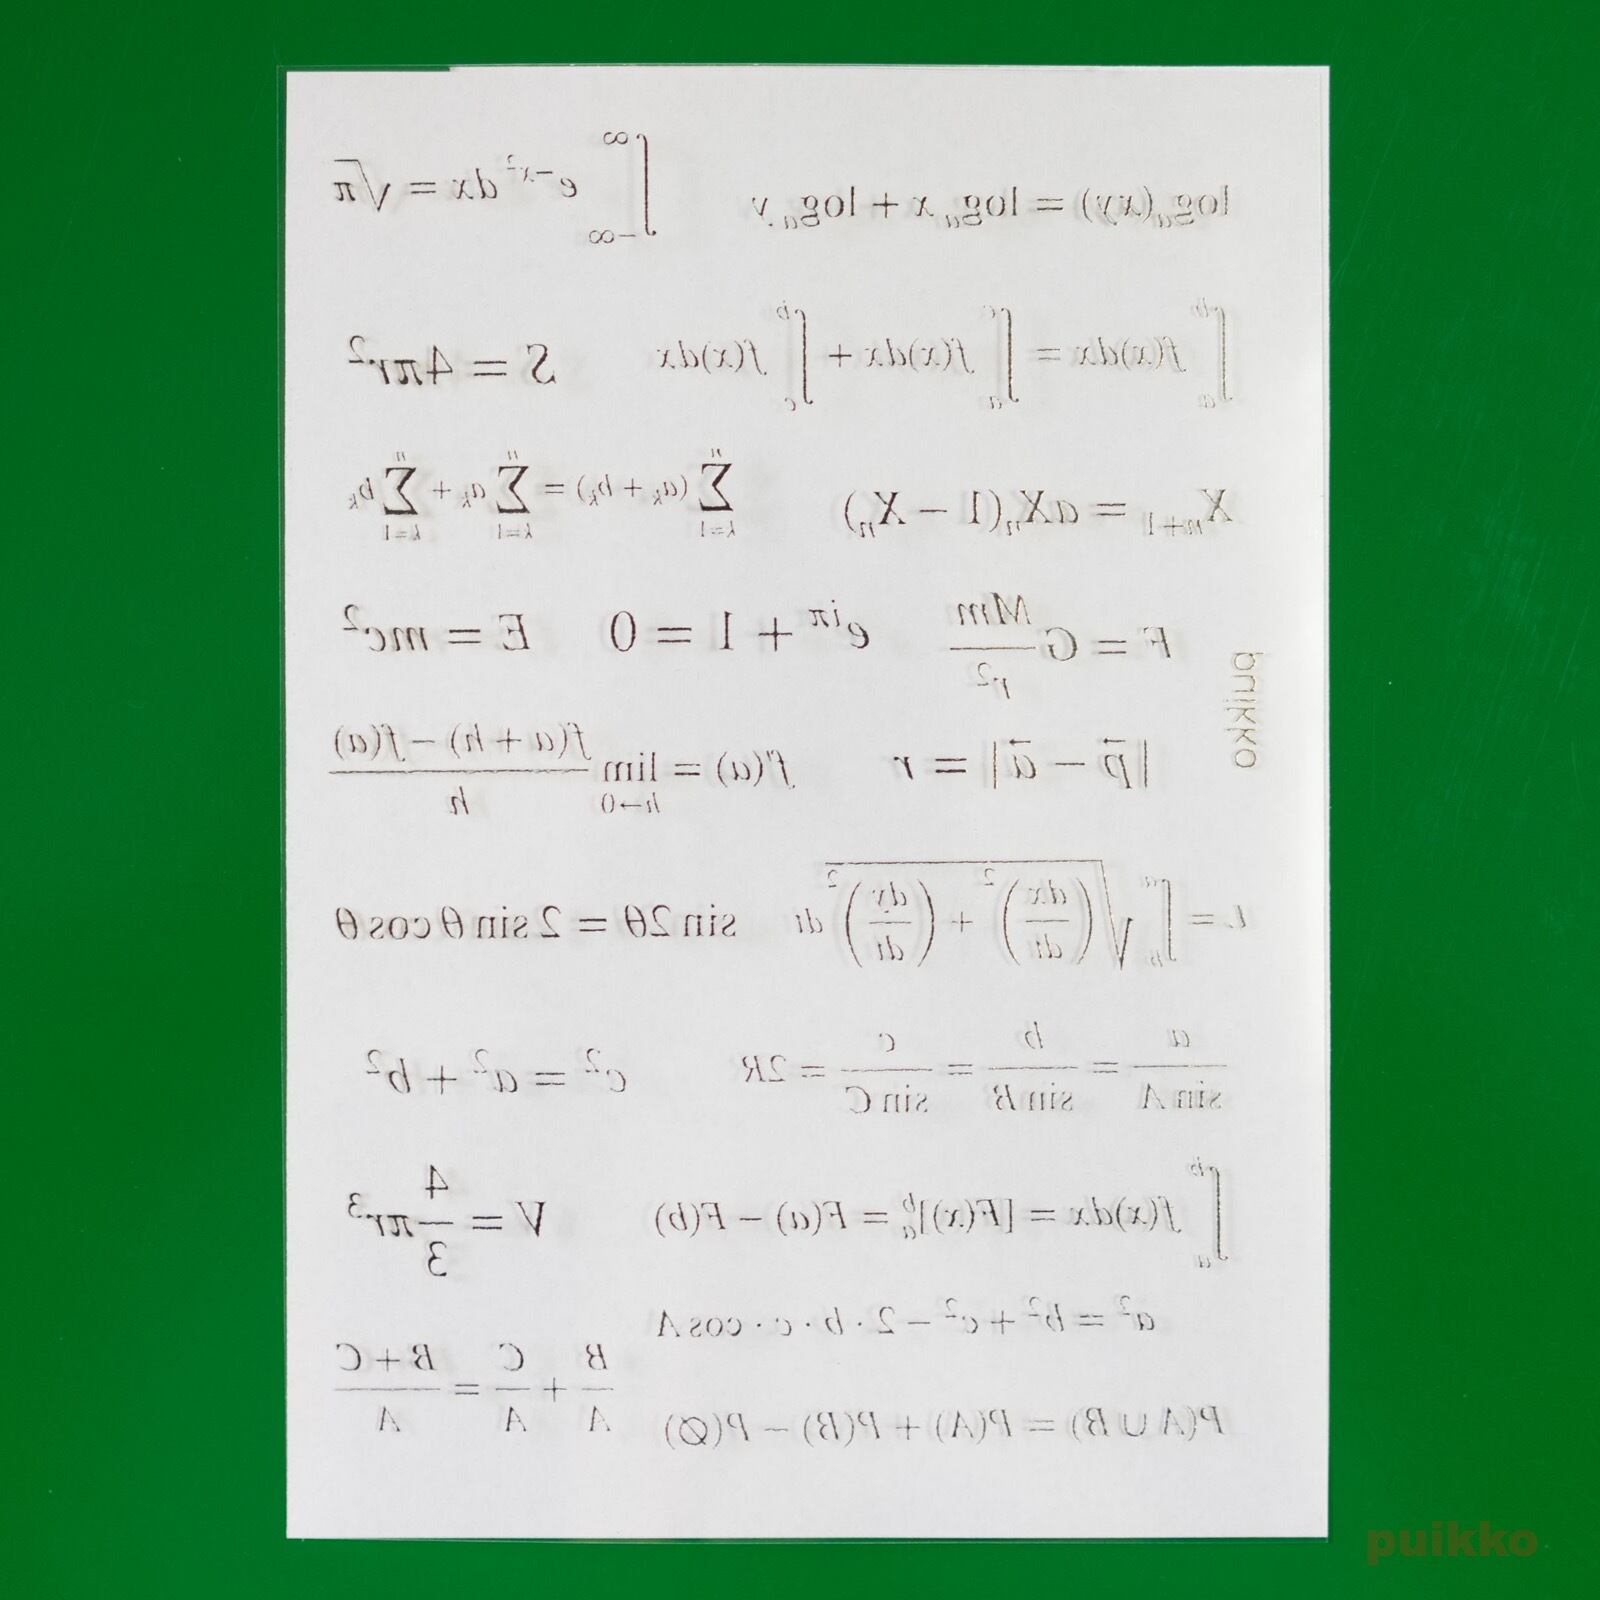 logₐ(xy) = logₐ x + logₐ y
∫_{-∞}^{∞} e^{-x²} dx = √π
∫_a^b f(x)dx = ∫_a^c f(x)dx + ∫_c^b f(x)dx
S = 4πr²
X_{n+1} = aX_n(1 − X_n)
∑_{k=1}^n (a_k + b_k) = ∑_{k=1}^n a_k + ∑_{k=1}^n b_k
F = G Mm/r²
e^{iπ} + 1 = 0
E = mc²
puikko
|p⃗ − a⃗| = r
f'(a) = lim_{h→0} (f(a + h) − f(a))/h
L = ∫ √((dx/dt)² + (dy/dt)²) dt
sin 2θ = 2 sin θ cos θ
a/sin A = b/sin B = c/sin C = 2R
c² = a² + b²
∫_a^b f(x)dx = [F(x)]_a^b = F(a) − F(b)
V = 4/3 πr³
a² = b² + c² − 2 · b · c · cos A
B/A + C/A = (B + C)/A
P(A ∪ B) = P(A) + P(B) − P(∅)
puikko